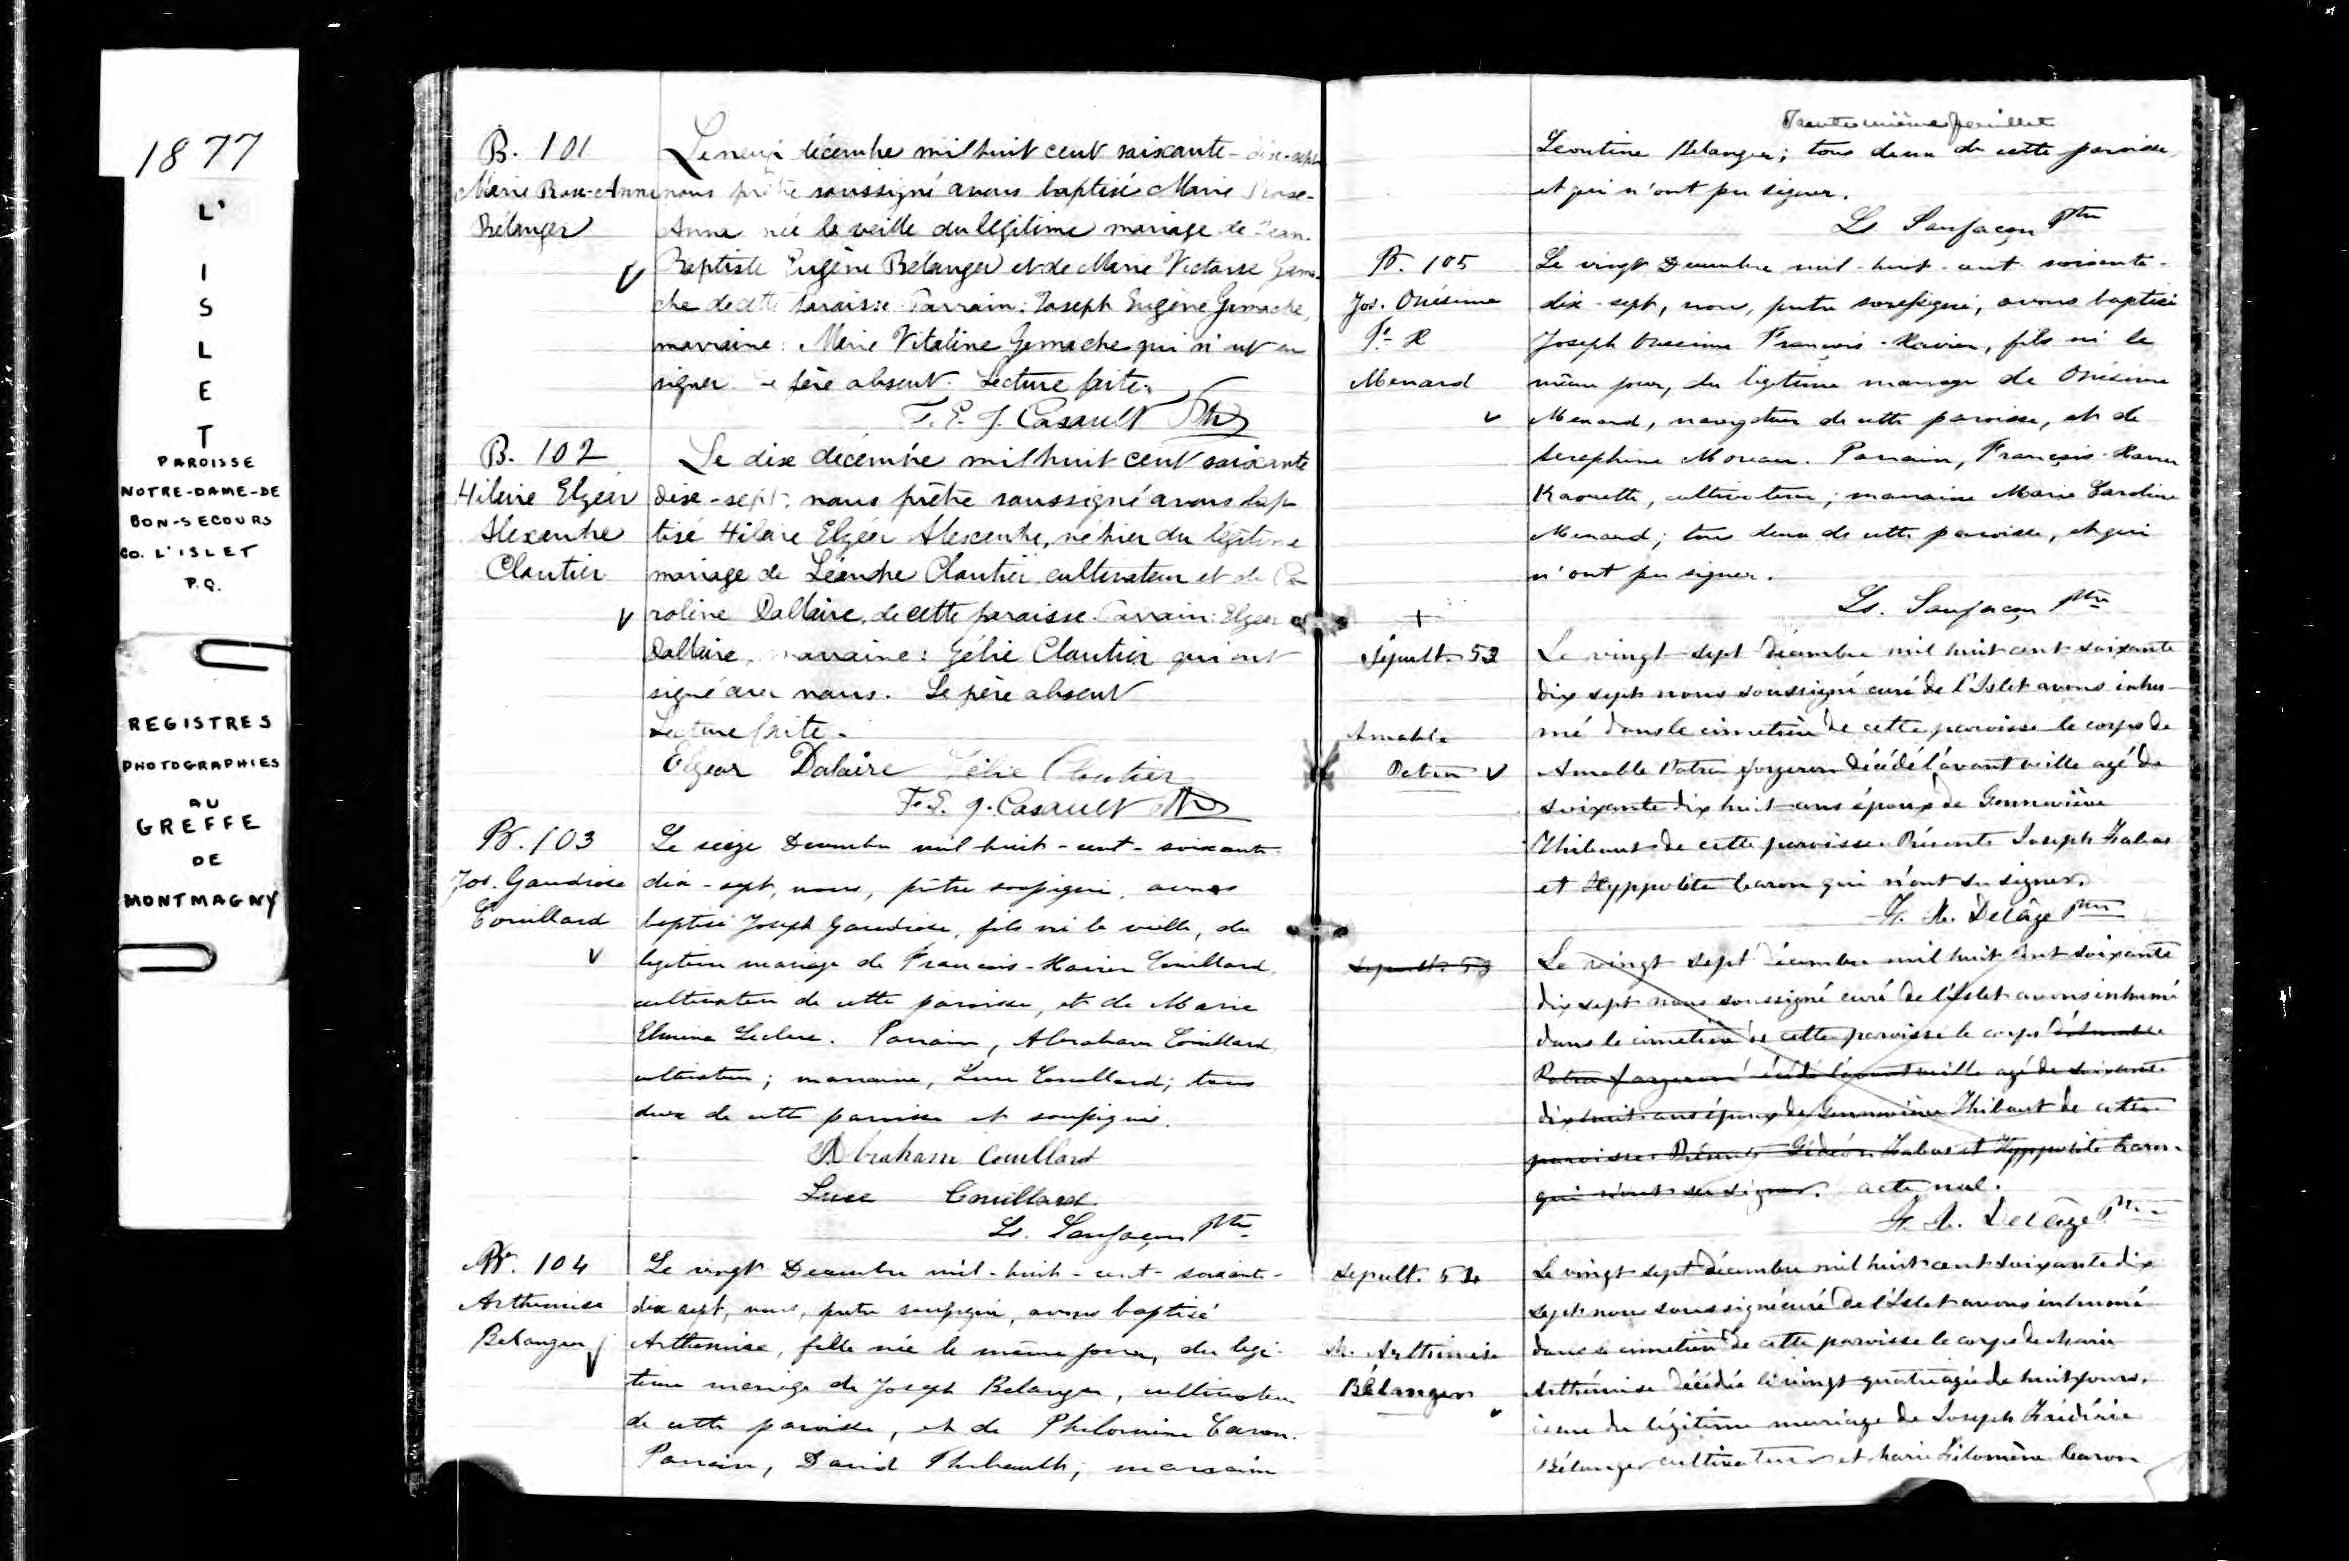 1877
L'
I
S
L
E
T
PAROISSE
NOTRE-DAME-DE
BON-SECOURS
CO. L'ISLET
P.Q.
REGISTRES
PHOTOGRAPHIES
AU
GREFFE
DE
MONTMAGNY
B. 101
Marie Rose-Anna
Bélanger
Le neuf décembre mil huit cent soixante-dix-sept
nous prêtre soussigné avons baptisé Marie Rose-
Anna née la veille du légitime mariage de Jean-
Baptiste Eugène Bélanger et de Marie Victoire Gama-
che de cette paroisse. Parrain: Joseph Eugène Gamache,
marraine: Marie Vitaline Gamache qui n'ont su
signer. Le père absent. Lecture faite.
F. E. J. Casault Ptre
B. 102
Hilaire Elzéar
Alexandre
Cloutier
Le dix décembre mil huit cent soixante
dix-sept, nous prêtre soussigné avons bap
tisé Hilaire Elzéar Alexandre, né hier du légitime
mariage de Léandre Cloutier cultivateur et de Ca
roline Dallaire, de cette paroisse. Parrain: Elzéar
Dallaire, marraine: Zélie Cloutier qui ont
signé avec nous. Le père absent
Lecture faite.
Elzear Dalaire Zélie Cloutier
F. E. J. Casault Ptre
B. 103
Jos. Gaudiose
Couillard
Le seize Decembre mil-huit-cent-soixante-
dix-sept, nous, prêtre soussigné, avons
baptisé Joseph Gaudiose, fils né la veille, du
legitime mariage de François-Xavier Couillard,
cultivateur de cette paroisse, et de Marie
Elmina Leclerc. Parrain, Abraham Couillard,
cultivateur; marraine, Luce Couillard; tous
deux de cette paroisse et soussignés.
Abraham Couillard
Luce Couillard
Ls. Sanfaçon Ptre
B. 104
Arthemise
Belanger
Le vingt Decembre mil-huit-cent-soixante-
dix sept, nous, prêtre soussigné, avons baptisé
Arthemise, fille née le même jour, du legi-
time mariage de Joseph Belanger, cultivateur
de cette paroisse, et de Philomine Caron.
Parrain, David Thibault; marraine
feuillet
Leontine Belanger; tous deux de cette paroisse
et qui n'ont pu signer.
Ls Sanfaçon Ptre
B. 105
Jos. Onésime
F.- X
Menard
Le vingt Decembre mil-huit-cent-soixante-
dix-sept, nous, prêtre soussigné, avons baptisé
Joseph Onesime François-Xavier, fils né le
même jour, du legitime mariage de Onésime
Menard, navigateur de cette paroisse, et de
Seraphine Moreau. Parrain, François-Xavier
Kaouette, cultivateur; marraine Marie Caroline
Menard; tous deux de cette paroisse, et qui
n'ont pu signer.
Ls. Sanfaçon Ptre
+
Sépult. 53
Amable
Le vingt sept décembre mil huit cent soixante
dix sept nous soussigné curé de l'Islet avons inhu-
mé dans le cimetière de cette paroisse le corps de
Amable forgeron décédé l'avant veille agé de
soixante dix huit ans époux de Genneviève
Thibaut de cette paroisse. Présents Joseph
et Hyppolite Caron qui n'ont su signer.
Delâge Ptre
Sepult. 53
Le vingt sept décembre mil huit cent soixante
dix sept nous soussigné curé de l'Islet avons inhumé
dans le cimetière de cette paroisse le corps d'Amable
forgeron décédé l'avant veille agé de soixante
dix huit ans époux de Genneviève Thibaut de cette
paroisse. Présents Gédéon et Hyppolite Caron
qui n'ont su signer. acte nul.
Delâge Ptre
Sepult. 54
M. Arthémise
Bélanger
Le vingt sept décembre mil huit cent soixante dix
sept nous soussigné curé de l'Islet avons inhumé
dans le cimetière de cette paroisse le corps de Marie
Arthémise décédée le vingt quatre agée de huit jours,
issue du légitime mariage de Joseph Frédéric
Bélanger cultivateur et Marie Filomène Caron